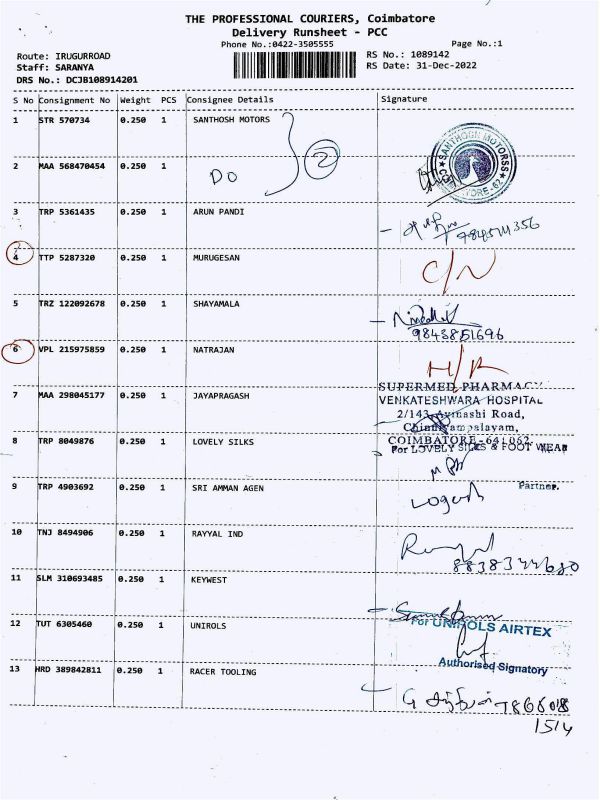 THE PROFESSIONAL COURIERS, Coimbatore
Delivery Runsheet - PCC
Phone No.:0422-3505555
Page No.:1
Route: IRUGURROAD
RS No.: 1089142
Staff: SARANYA
RS Date: 31-Dec-2022
DRS No.: DCJB108914201
S No Consignment No Weight PCS Consignee Details Signature
1 STR 570734 0.250 1 SANTHOSH MOTORS
2
2 MAA 568470454 0.250 1 DO
SANTHOSH MOTORSS
3 TRP 5361435 0.250 1 ARUN PANDI
4 TTP 5287320 0.250 1 MURUGESAN C/N
5 TRZ 122092678 0.250 1 SHAYAMALA
9843851696
6 VPL 215975859 0.250 1 NATRAJAN
SUPERMED PHARMACY
7 MAA 298045177 0.250 1 JAYAPRAGASH VENKATESHWARA HOSPITAL
2/143, Avinashi Road,
Chinniyampalayam,
COIMBATORE-641 062
8 TRP 8049876 0.250 1 LOVELY SILKS For LOVELY SILKS & FOOT WEAR
Partner.
9 TRP 4903692 0.250 1 SRI AMMAN AGEN Logesh
10 TNJ 8494906 0.250 1 RAYYAL IND
11 SLM 310693485 0.250 1 KEYWEST
12 TUT 6305460 0.250 1 UNIROLS For UNIROLS AIRTEX
Authorised Signatory
13 HRD 389842811 0.250 1 RACER TOOLING
1514